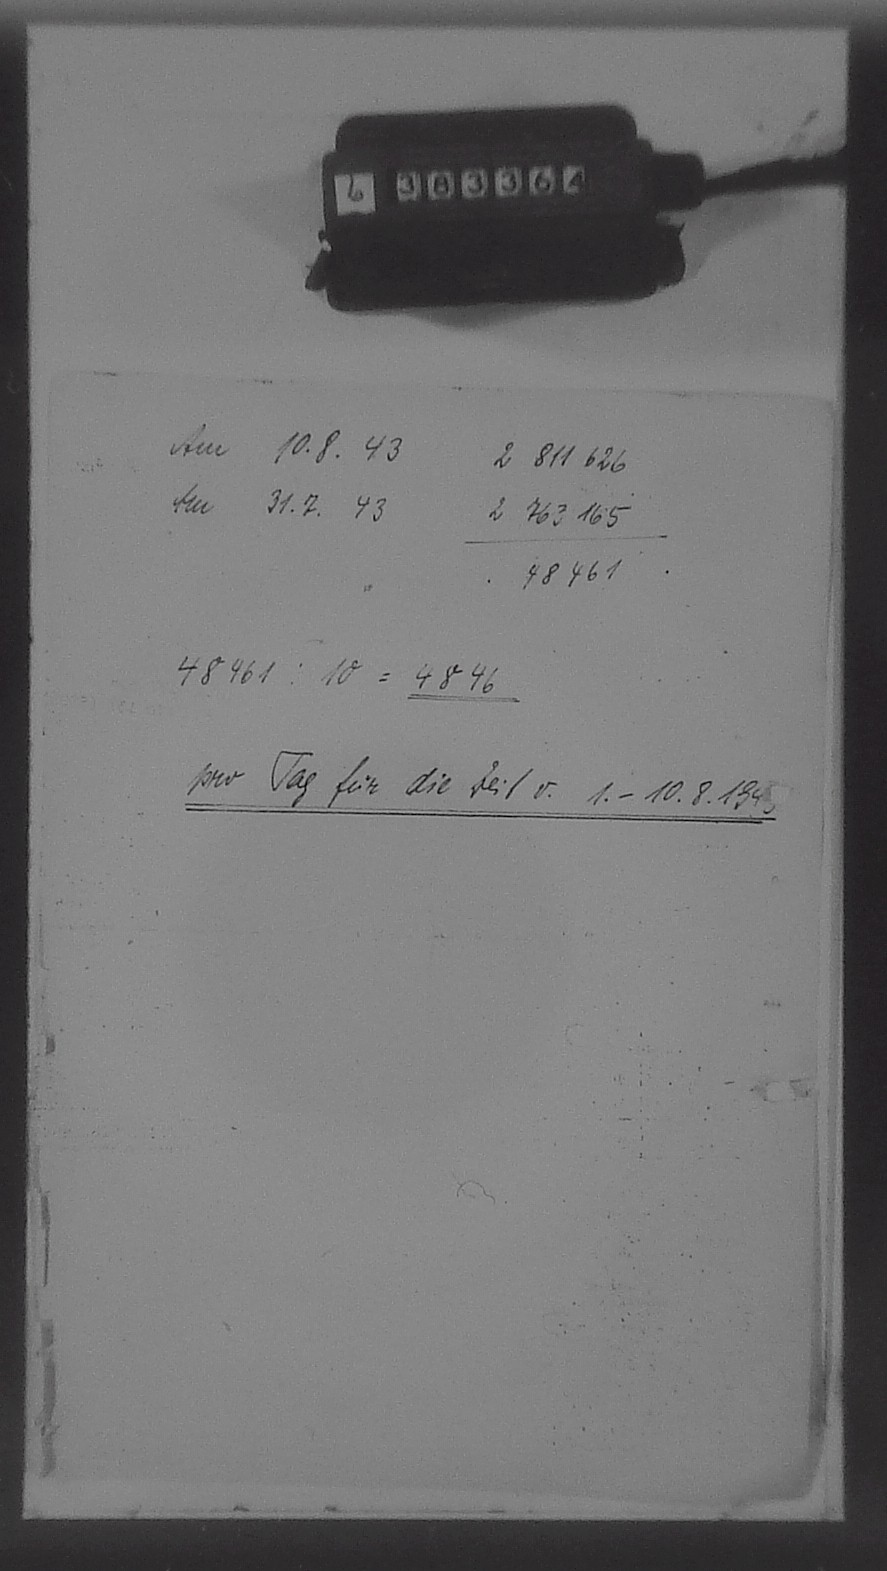 6 383364
Am 10.8. 43 2 811 626
Am 31.7. 43 2 763 165
48 461
48461 : 10 = 4846
pro Tag für die Zeit v. 1.- 10.8.1943